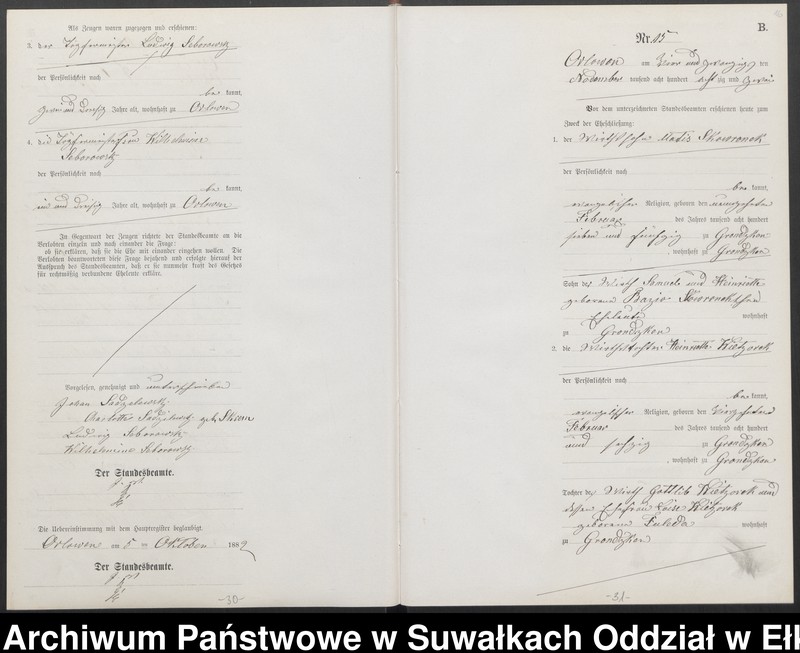 Als Zeugen waren zugezogen und erschienen:
3. der Töpfermeister Ludwig Seborowitz
der Persönlichkeit nach
be kannt,
zwei und dreißig Jahre alt, wohnhaft zu Orlowen
4. die Töpfermeisterfrau Wilhelmine
Seborowitz
der Persönlichkeit nach
be kannt,
ein und dreißig Jahre alt, wohnhaft zu Orlowen
In Gegenwart der Zeugen richtete der Standesbeamte an die
Verlobten einzeln und nach einander die Frage:
ob sie erklären, daß sie die Ehe mit einander eingehen wollen. Die
Verlobten beantworteten diese Frage bejahend und erfolgte hierauf der
Ausspruch des Standesbeamten, daß er sie nunmehr kraft des Gesetzes
für rechtmäßig verbundene Eheleute erkläre.
Vorgelesen, genehmigt und unterschrieben
Johann
Charlotte geb.
Ludwig Seborowitz
Wilhelmine Seborowitz
Der Standesbeamte.
Die Uebereinstimmung mit dem Hauptregister beglaubigt.
Orlowen am 5 ten Oktober 1882
Der Standesbeamte.
-30-
B.
Nr. 15
Orlowen am vier und zwanzigsten
November tausend acht hundert acht zig und zwei
Vor dem unterzeichneten Standesbeamten erschienen heute zum
Zweck der Eheschließung:
1. der Wirthssohn Matis Skowronek
der Persönlichkeit nach
be kannt,
evangelischer Religion, geboren den neunzehnten
Februar des Jahres tausend acht hundert
sieben und fünfzig zu Grondzken
, wohnhaft zu Grondzken
Sohn der Wirth Samuel und Heinriette
geborene Skowronekschen
Eheleute wohnhaft
zu Grondzken
2. die Wirthstochter Heinriette Kietzorek
der Persönlichkeit nach
be kannt,
evangelischer Religion, geboren den vierzehnten
Februar des Jahres tausend acht hundert
und sechzig zu Grondzken
, wohnhaft zu Grondzken
Tochter des Wirth Gottlieb Kietzorek und
dessen Ehefrau Loise Kietzorek
geborene wohnhaft
zu Grondzken
-31-
Archiwum Państwowe w Suwałkach Oddział w Ełk